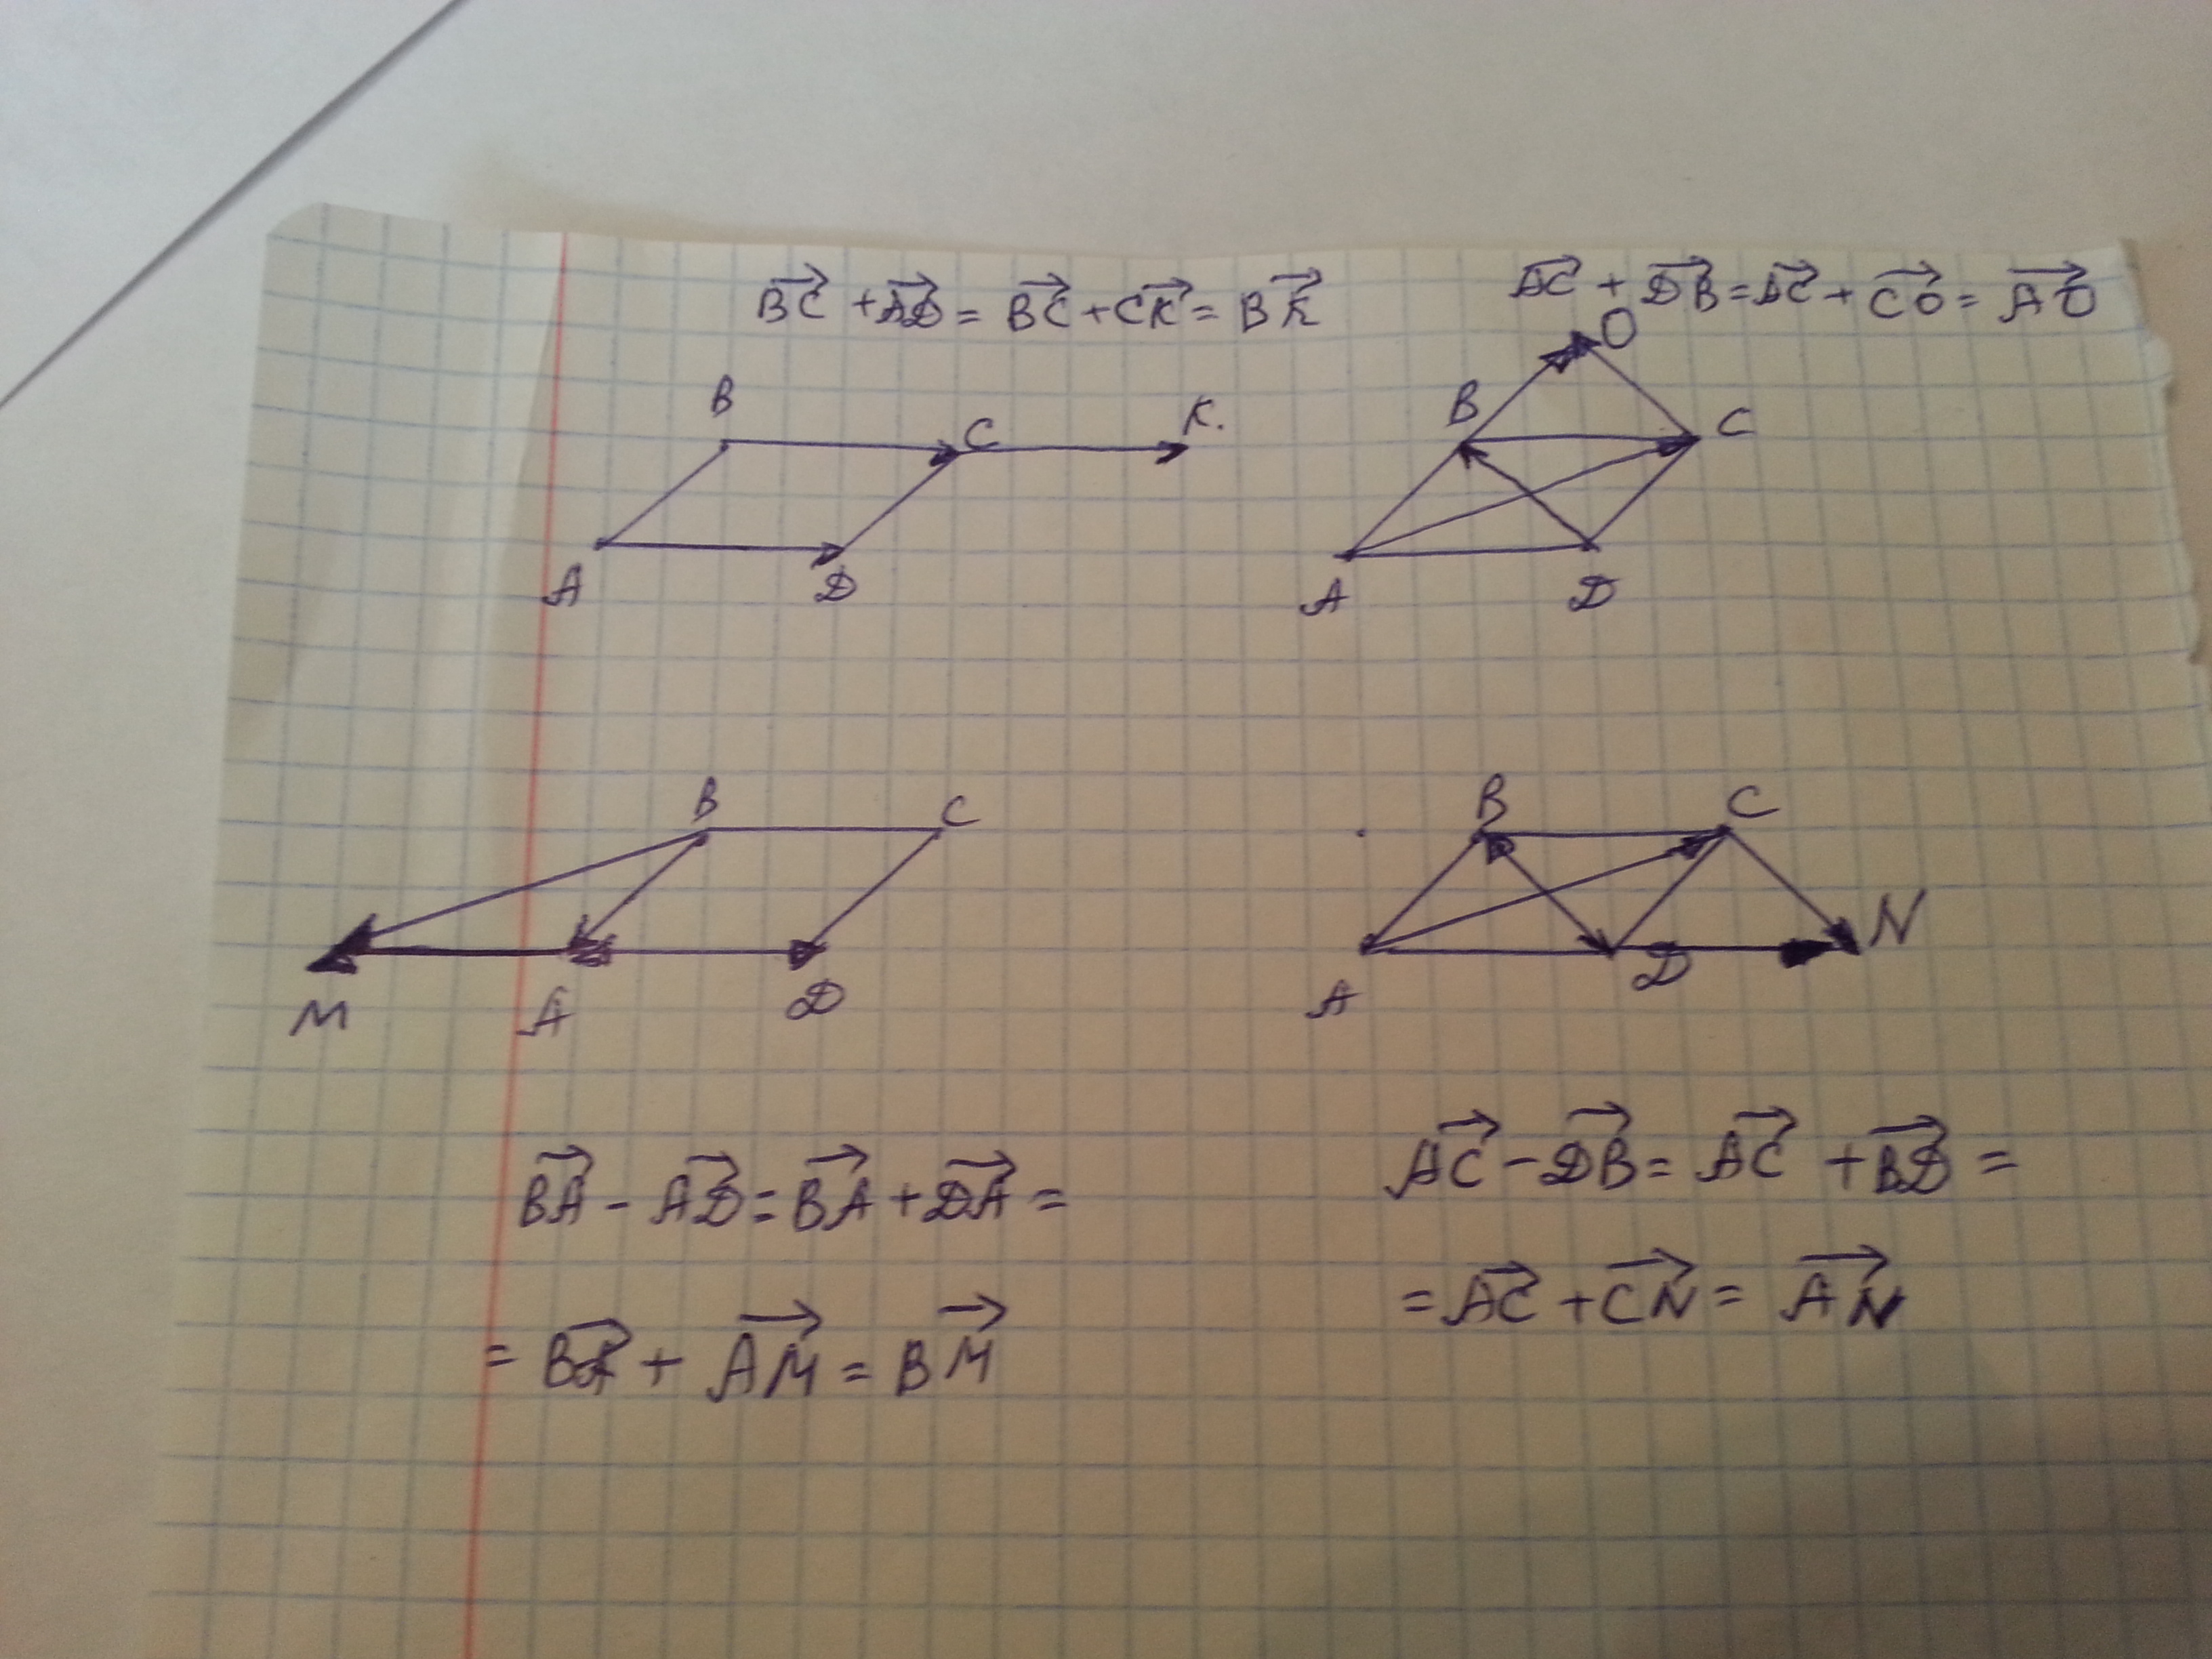 BC + AD = BC + CK = BK
AC + DB = AC + CO = AO
B C K.
A D
O
B C
A D
B C
M A D
B C
N
A D
BA - AD = BA + DA =
= BA + AM = BM
AC - DB = AC + BD =
= AC + CN = AN